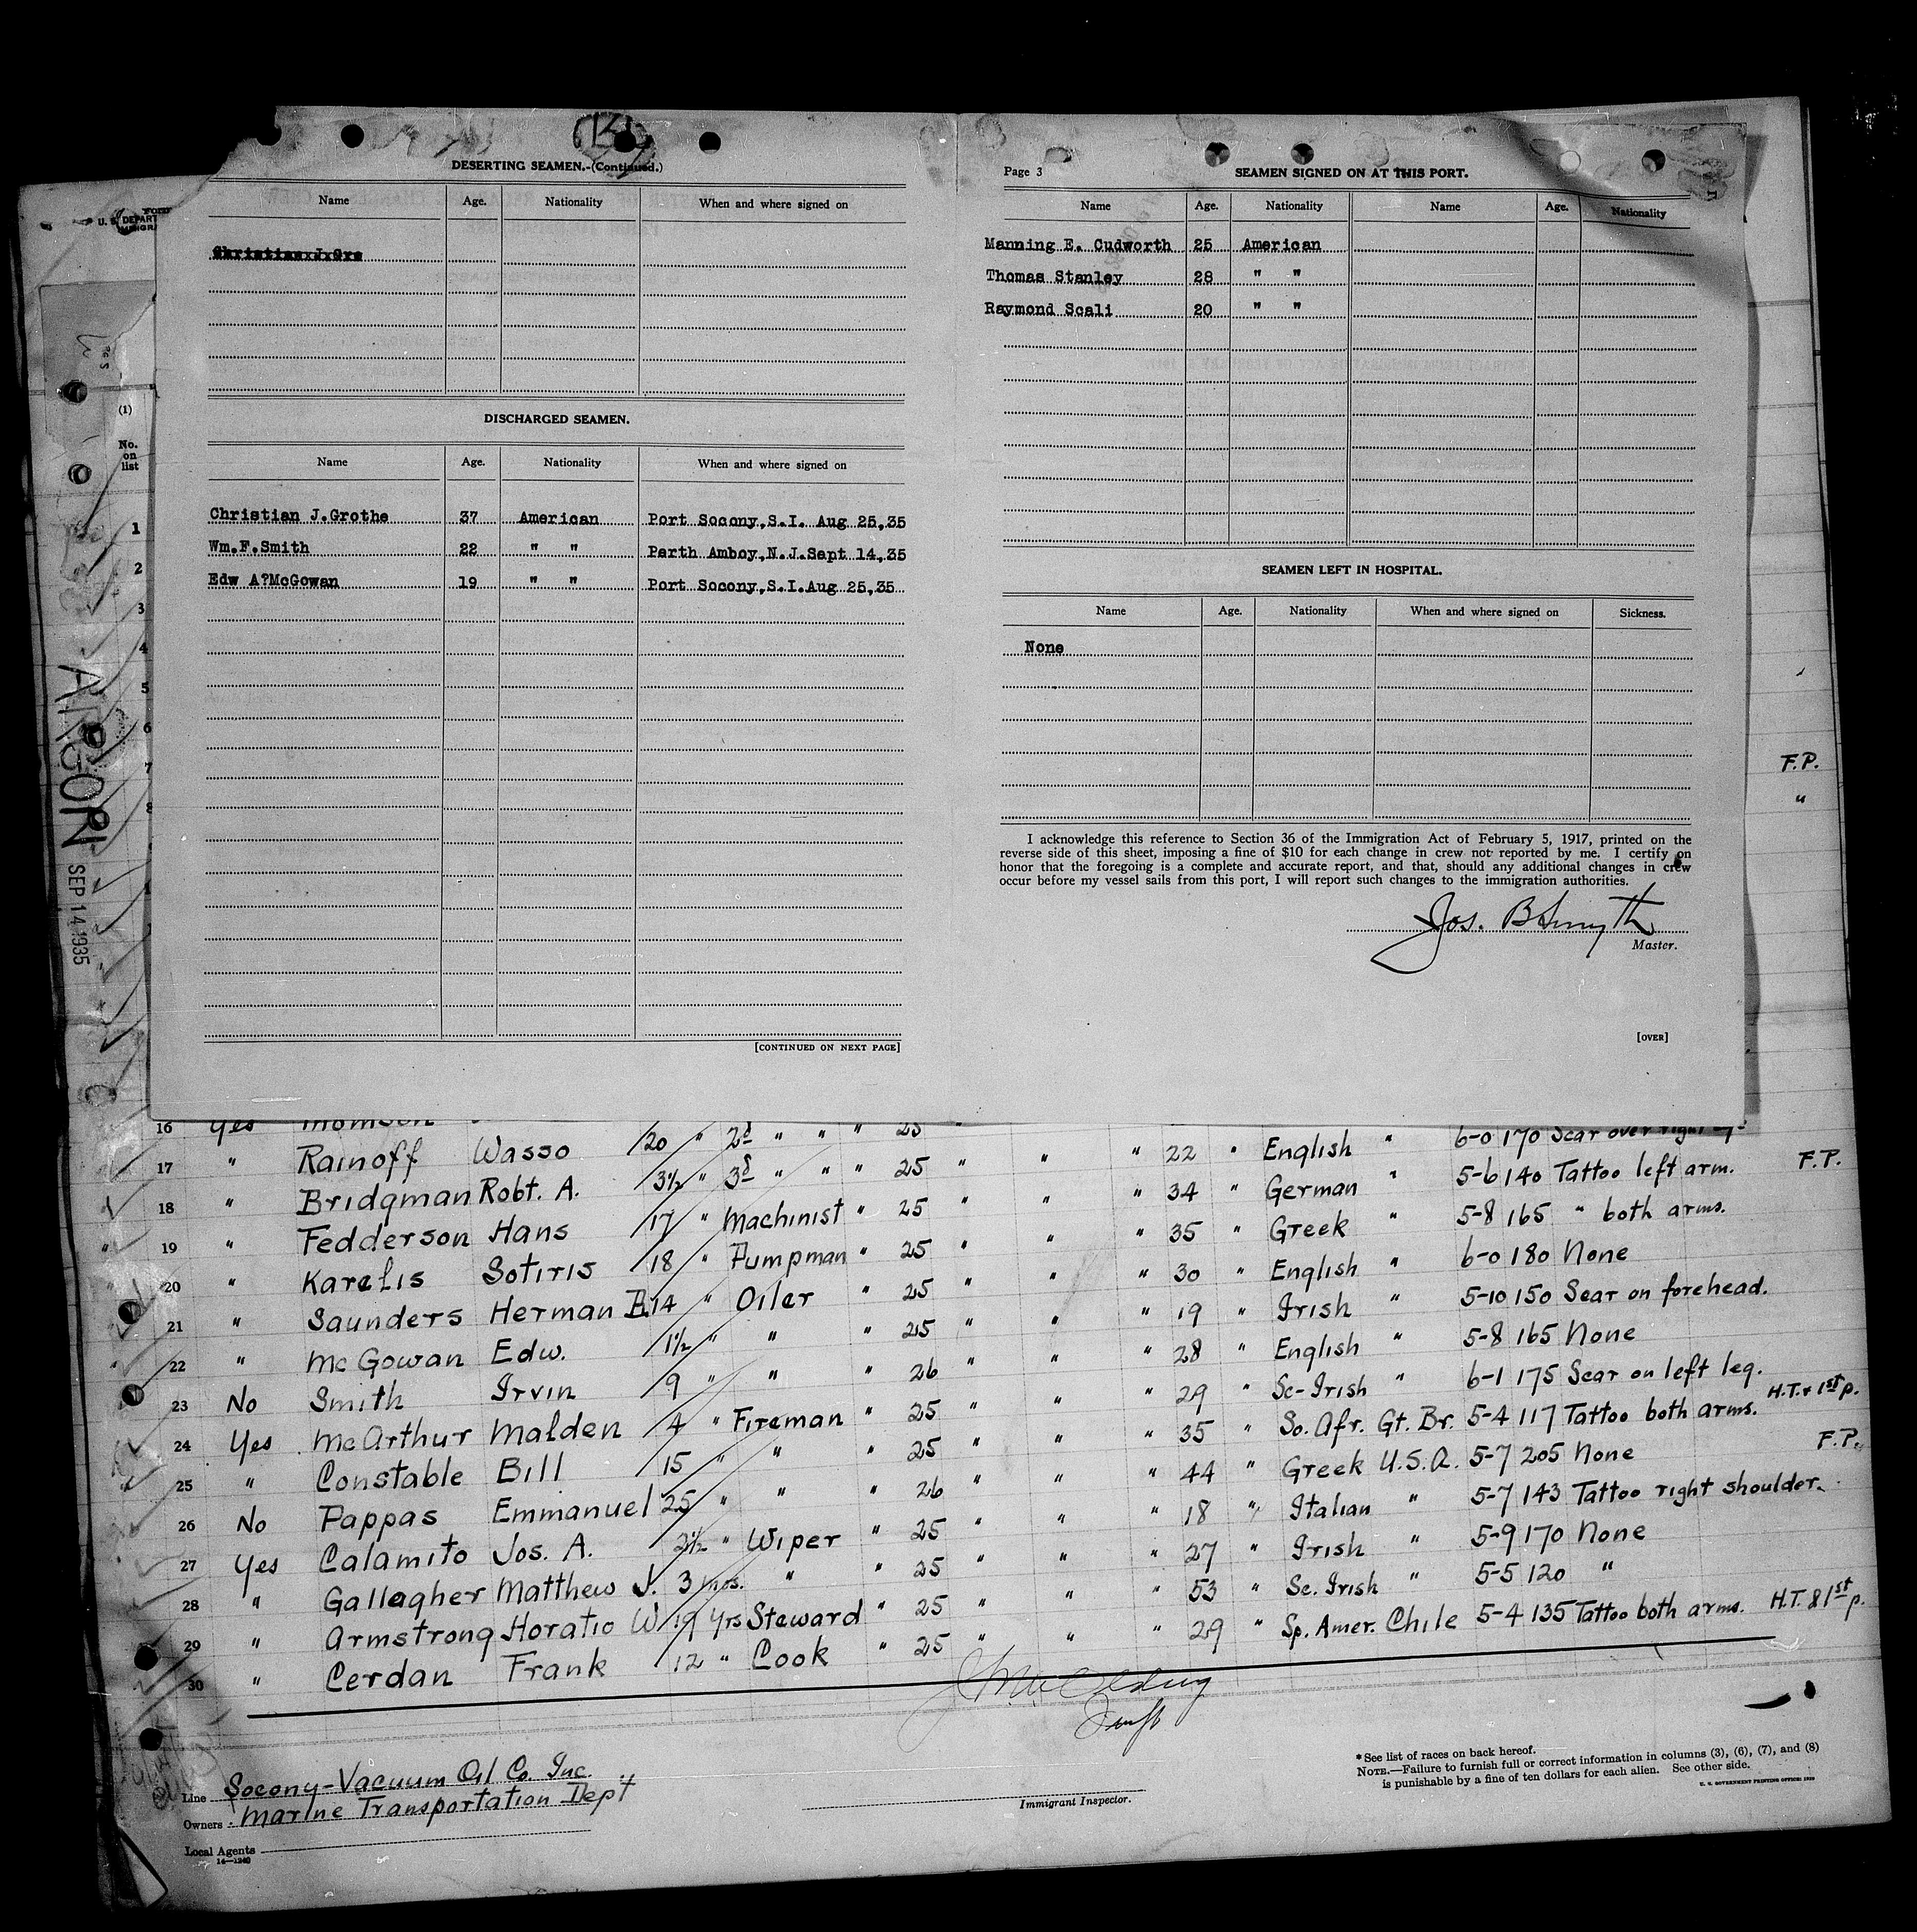 DESERTING SEAMEN.-(Continued.)
Name Age. Nationality When and where signed on
DISCHARGED SEAMEN.
Name Age. Nationality When and where signed on
Christian J.Grothe 37 American Port Socony,S.I. Aug 25,35
Wm.F.Smith 22 " " Perth Amboy,N.J.Sept 14,35
Edw A?McGowan 19 " " Port Socony,S.I.Aug 25,35
[CONTINUED ON NEXT PAGE]
Page 3 SEAMEN SIGNED ON AT THIS PORT.
Name Age. Nationality Name Age. Nationality
Manning E. Cudworth 25 American
Thomas Stanley 28 " "
Raymond Scali 20 " "
SEAMEN LEFT IN HOSPITAL.
Name Age. Nationality When and where signed on Sickness.
None
I acknowledge this reference to Section 36 of the Immigration Act of February 5, 1917, printed on the
reverse side of this sheet, imposing a fine of $10 for each change in crew not reported by me. I certify on
honor that the foregoing is a complete and accurate report, and that, should any additional changes in crew
occur before my vessel sails from this port, I will report such changes to the immigration authorities.
Jos. B Smyth
Master.
[OVER]
(1)
No.
on
list
1
2
3
4
5
6
7
8
ARGON
SEP 14 1935
F.P.
"
16 Yes Thomson 25 6-0 170 Scar over right
17 " Rainoff Wasso 20 " 2d " " " 25 " " " 22 " English " 5-6 140 Tattoo left arm. F.P.
18 " Bridgman Robt. A. 3½ " 3d " " " 25 " " " 34 " German " 5-8 165 " both arms.
19 " Fedderson Hans 17 " Machinist " 25 " " " 35 " Greek " 6-0 180 None
20 " Karelis Sotiris 18 " Pumpman " 25 " " " 30 " English " 5-10 150 Scar on forehead.
21 " Saunders Herman E. 14 " Oiler " 25 " " " 19 " Irish " 5-8 165 None
22 " McGowan Edw. 1½ " " " 25 " " " 28 " English " 6-1 175 Scar on left leg.
23 No Smith Irvin 9 " " " 26 " " " 29 " Sc-Irish " 5-4 117 Tattoo both arms. H.T. & 1st p.
24 Yes McArthur Malden 4 " Fireman " 25 " " " 35 " So. Afr. Gt. Br. 5-7 205 None F.P.
25 " Constable Bill 15 " " " 25 " " " 44 " Greek U.S.A. 5-7 143 Tattoo right shoulder.
26 No Pappas Emmanuel 25 " " " 26 " " " 18 " Italian " 5-9 170 None
27 Yes Calamito Jos. A. 2½ " Wiper " 25 " " " 27 " Irish " 5-5 120 "
28 " Gallagher Matthew J. 3 mos. " " 25 " " " 53 " Sc. Irish " 5-4 135 Tattoo both arms. H.T. & 1st p.
29 " Armstrong Horatio W 19 yrs Steward " 25 " " " 29 " Sp. Amer. Chile
30 " Cerdan Frank 12 " Cook " 25 " "
Line Socony-Vacuum Oil Co. Inc.
Owners Marine Transportation Dept
Local Agents
14—1240
Immigrant Inspector.
*See list of races on back hereof.
NOTE.—Failure to furnish full or correct information in columns (3), (6), (7), and (8)
is punishable by a fine of ten dollars for each alien. See other side.
U. S. GOVERNMENT PRINTING OFFICE: